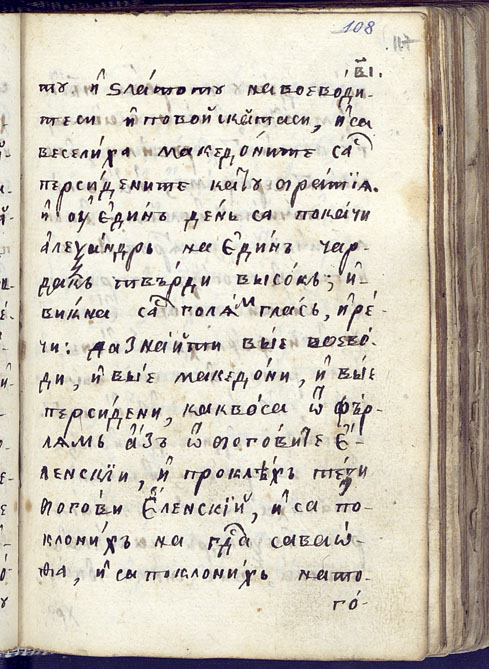 108
117
в҃і.
ту и҆ ѕла́тоту навоевѡди-
теси и҆ повои҆скатаси, и҆са
весели́ха македо́ните са̑с
перси́дените катꙋ ѻратїѧ.
и҆ ѻу҆ е҆ди́нъ де́нь са пока́чи
а҆леѯа́ндрь на е҆ди́нъ чар-
да́къ твъ́рди высо́къ; и҆-
ви́кна са̑с полѧ̑м гла́сь, и҆ ре́-
чи: да зна́йти вы́е воево́-
ди, и҆ вы́е македо́ни, и҆ вы́е
персиде́ни, какво́са ѿ фъ́р-
лѧмь а҆́зъ ѿ ѻогови́те е҆́-
ле́нскїи, и҆ прокле́хъ те́зи
ѻого́ви е҆́ленскїй, и҆ са по-
клони́хъ на гд҃а саваѡ҆́-
ѳа, и҆ са поклони́хь на то-
го́-